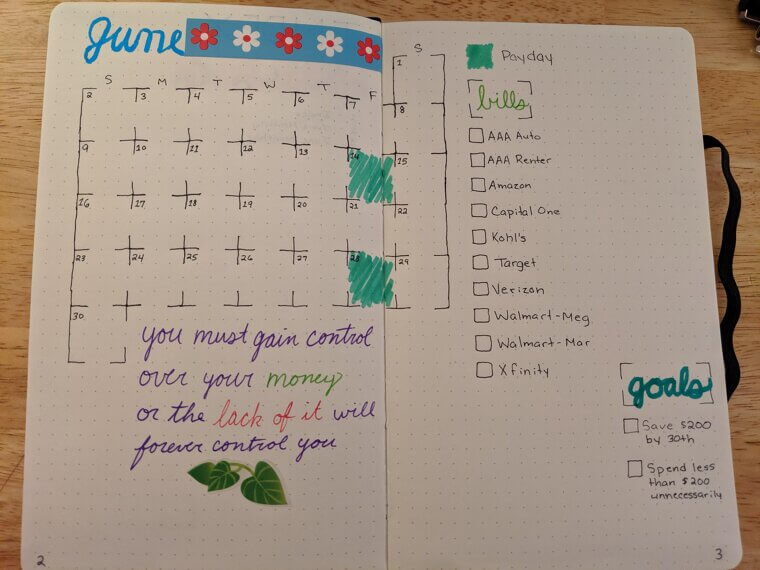 June
S M T W T F S
1
2 3 4 5 6 7 8
9 10 11 12 13 14 15
16 17 18 19 20 21 22
23 24 25 26 27 28 29
30
you must gain control
over your money
or the lack of it will
forever control you
2
Payday
bills
AAA Auto
AAA Renter
Amazon
Capital One
Kohl's
Target
Verizon
Walmart-Meg
Walmart-Mar
Xfinity
goals
Save $200
by 30th
Spend less
than $200
unnecessarily
3